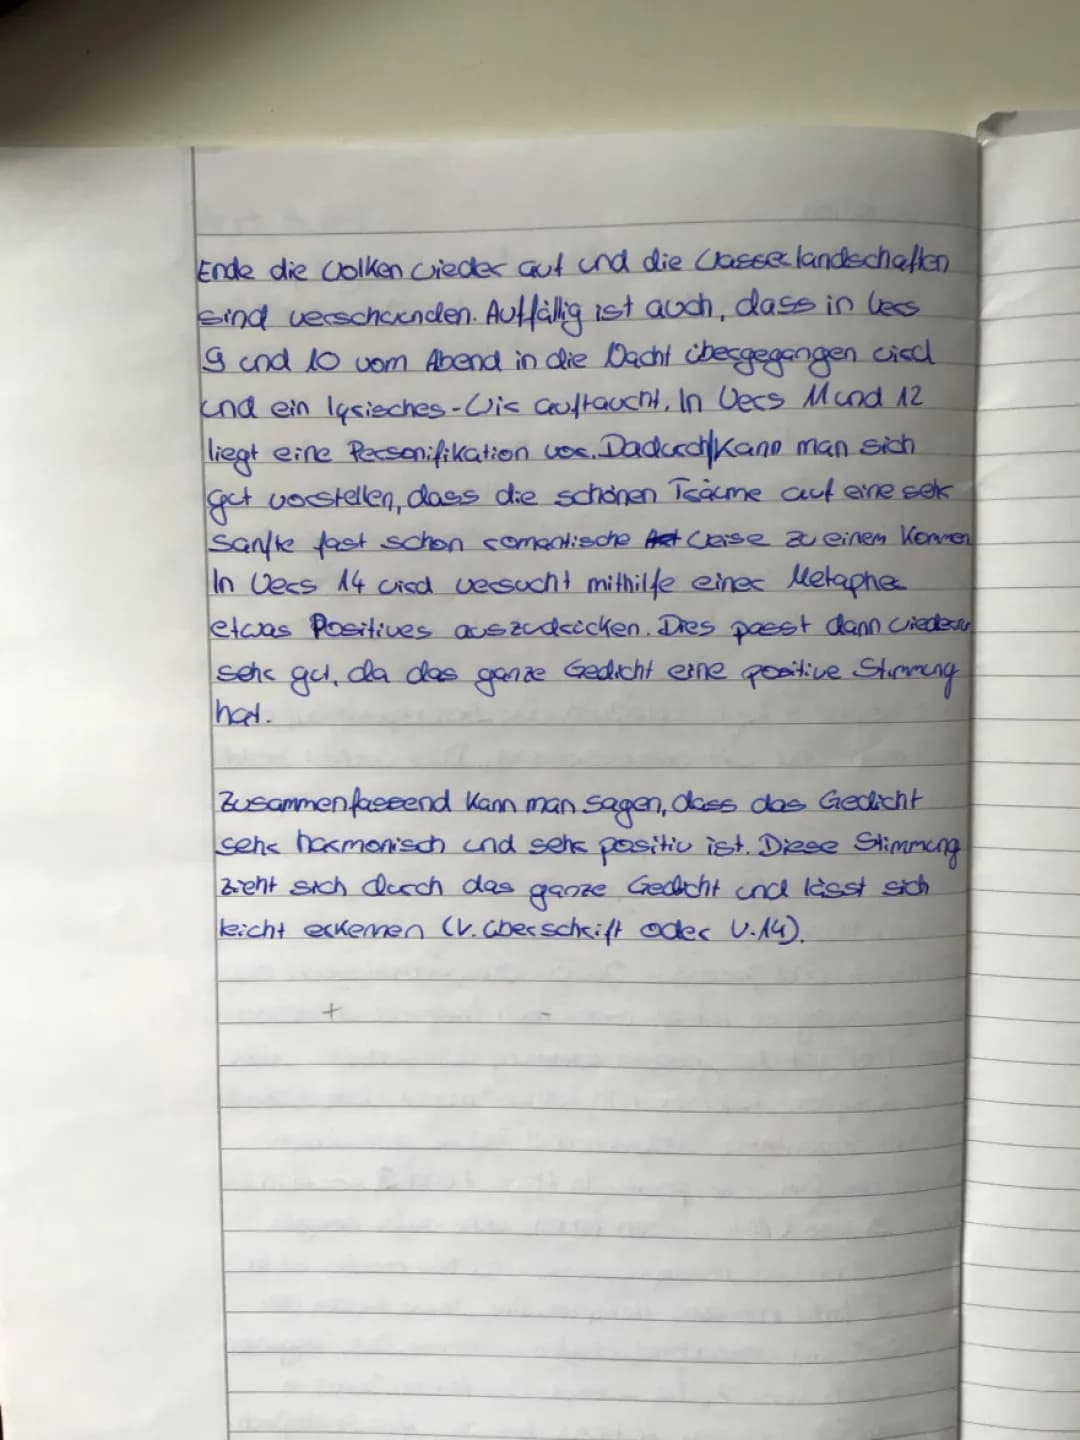 Ende die Wolken wieder auf und die Wasserlandschaften
sind verschwunden. Auffällig ist auch, dass in Vers
9 und 10 vom Abend in die Nacht übergegangen wird
und ein lyrisches-Wir auftaucht. In Vers 11 und 12
liegt eine Personifikation vor. Dadurch kann man sich
gut vorstellen, dass die schönen Träume auf eine sehr
sanfte fast schon romantische Art Weise zu einem kommen
In Vers 14 wird versucht mithilfe einer Metapher
etwas Positives auszudrücken. Dies passt dann wiederum
sehr gut, da das ganze Gedicht eine positive Stimmung
hat.
Zusammenfassend kann man sagen, dass das Gedicht
sehr harmonisch und sehr positiv ist. Diese Stimmung
zieht sich durch das ganze Gedicht und lässt sich
leicht erkennen (V. Überschrift oder V.14).
+ -